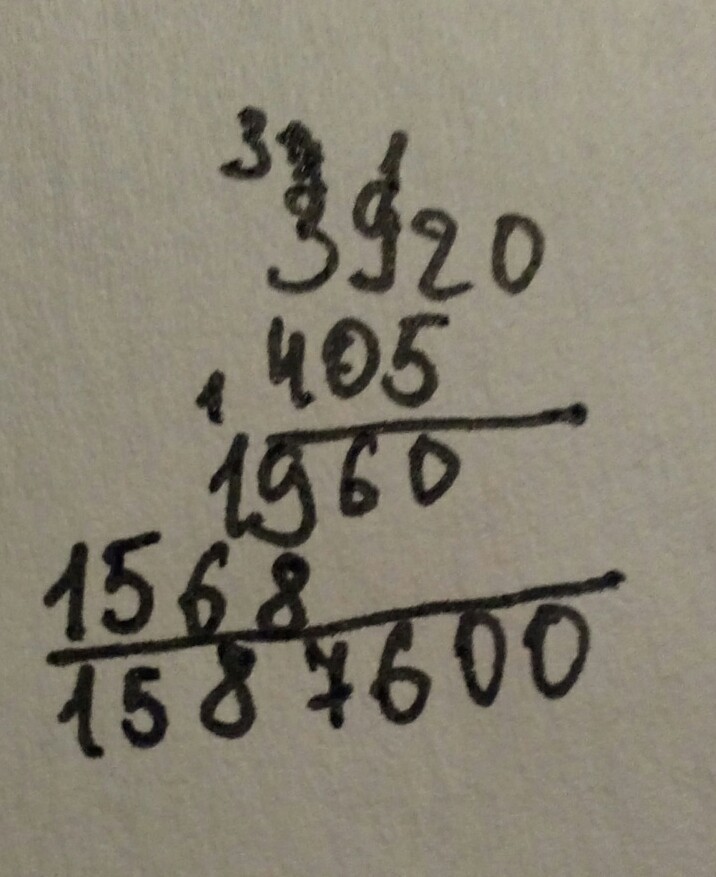 3 1
3920
405
1
1960
1568
1587600